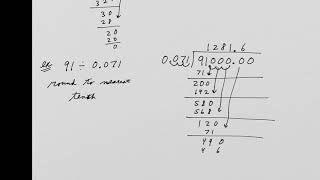 30
28
20
20
0
ex. 91 ÷ 0.071
round to nearest
tenth
1281.6
0.071 91000.00
71
200
142
580
568
120
71
490
4 6